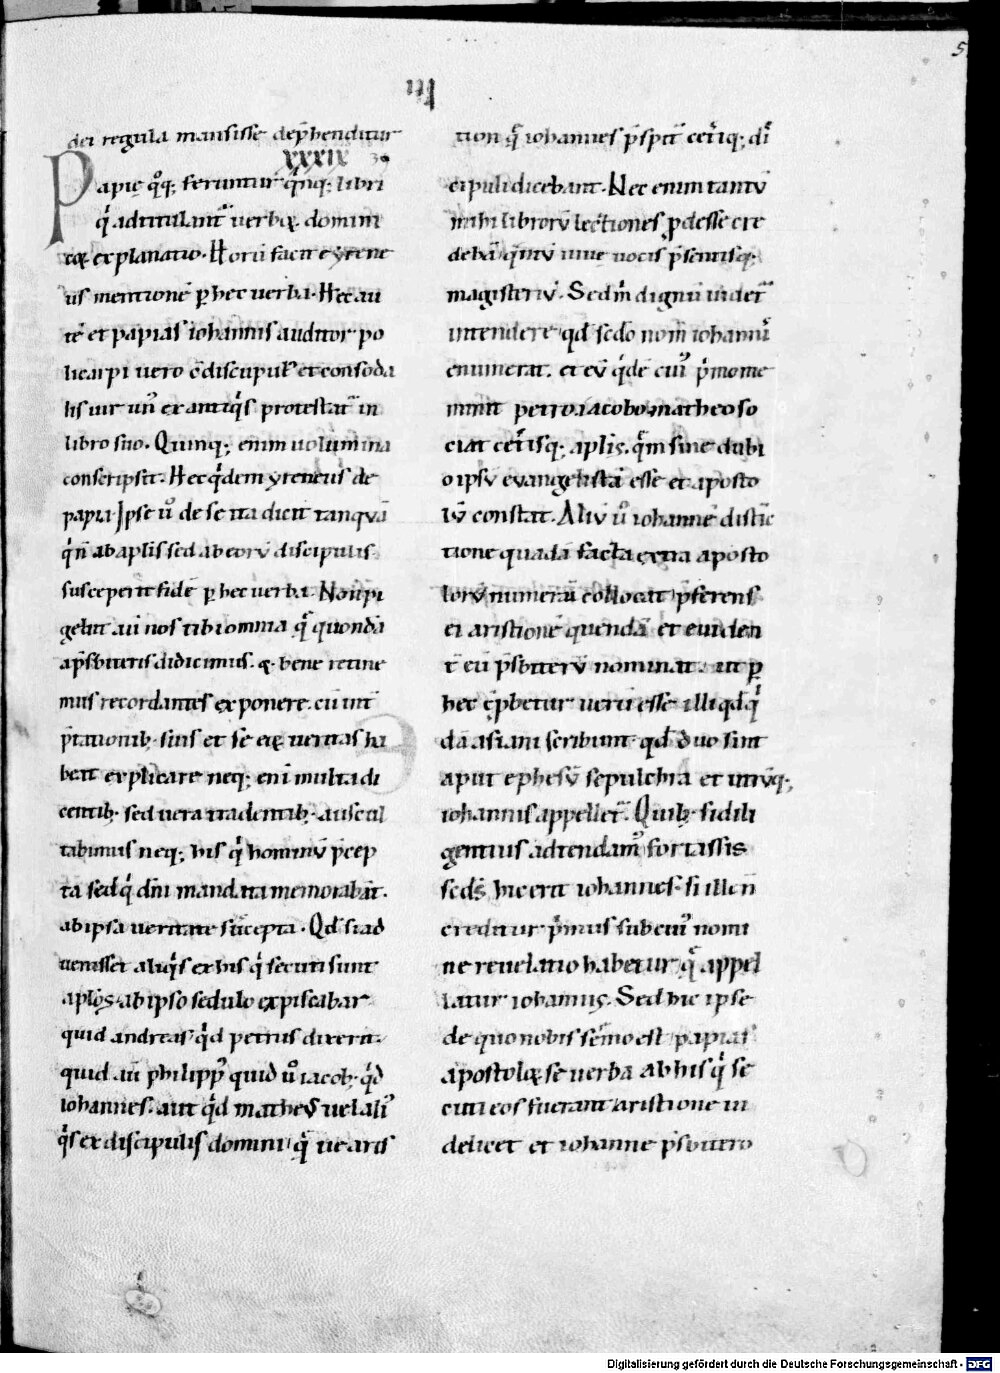 5
III
dei regula mansisse dep̄henditur
XXXIX 39
Papię q̊q; feruntur q̍nq; libri
q̍ adtitulant᷑ verbοꝝ domini
coꝝ explanatio. Horū facit eyrene
us mentionē ꝑ hec verba. Hec au
tē et papias iohannis auditor po
licarpi vero c̄discipul᷒ et consoda
lis uir un᷒ ex antiq̍s protestat᷑ in
libro suo. Quinq; enim uolumina
conscripsit. Hec q̍dem yreneus de
papia. Ipse ů de se ita dicit tanquā
q̍ n̄ ab aplis sed ab eorū discipulis
susceperit fidē ꝑ hec uerba. Non pi
gebit aū nos tibi omnia q̨ quondā
a p̄sbiteris didicimus. & bene retine
mus recordantes exponere. cū int̄
p̄tationib; suis et se eiꝰ veritas ha
beat explicare neq; enī multa di
centib; sed uera tradentib; auscul
tabimus neq; his q̍ hominū p̄cep
ta sed q̍ dn̄i mandata memorabāt.
ab ipsa ueritate suscepta. Qd̄ si ad
uenisset aliq̍s ex his q̍ secuti sunt
aplos. ab ipso sedulo expiscabar
quid andreas q̍d petrus dixerit.
quid aū philippꝰ quid ů iacob; q̍d
iohannes. aut q̍d matheus uel aliꝰ
q̍s ex discipulis domini q̨ ue aris
tion q̨ iohannes p̄spit̄ ceteriq; di
cipuli dicebant. Nec enim tantū
mihi librorū lectiones ꝓdesse cre
debā q̍ntū uiuę uocis p̄sentisq;
magisteriū. Sed m̍ dignū uidet᷑
intendere qd̄ se do nom̄ iohannis
enumerat. et eū q̍dē cuiꝰ p̍mo me
minit petro. iacobo. matheo so
ciat ceterisq; aplis. q̄m sine dubi
o ipsū evangelistā esse et aposto
lū constat. Aliū ů iohannē distic
tione quadā facta extra aposto
lorū numerū collocat p̄ferens
ei aristionē quendā et euiden
t̄ eū p̄sbiterū nominat. ut ꝑ
hec cp̄betur uerū esse illi qd̄ q̍
dā asiani scribunt. qd̄ duo sint
aput ephesū sepulchra et utrūq;
iohannis appellet᷑. Quib; si dili
gentius adtendamꝰ fortassis
seds̄ hic erit iohannes. si illē n̄
creditur p̍mus sub cuiꝰ nomi
ne revelatio habetur q̨ appel
latur iohannis. Sed hic ipse
de quo nobis sermo est papias
apostoloꝝ se uerba ab his q̍ se
cuti eos fuerant aristione ui
delicet et iohanne p̄sbitero
Digitalisierung gefördert durch die Deutsche Forschungsgemeinschaft - DFG